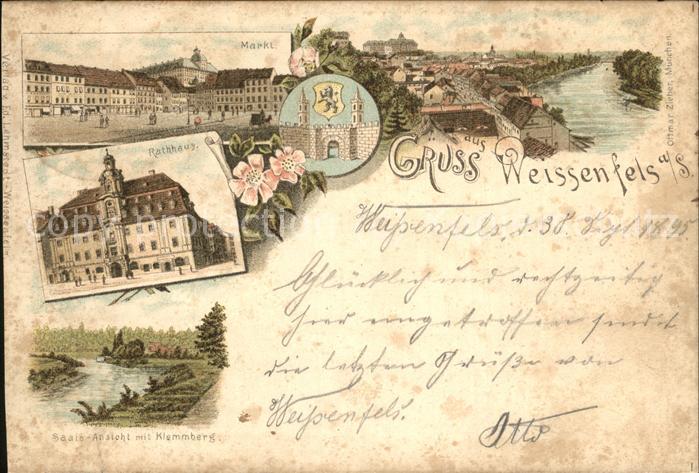 Markt.
Rathhaus.
Gruss aus Weissenfels a/S.
Ottmar Zieher, München.
Weißenfels, d. 30. Sept. 1895
Glücklich und rechtzeitig
hier eingetroffen sendet
die letzten Grüße von
Weißenfels.
Otto
Saale-Ansicht mit Klemmberg.
Verlag v.